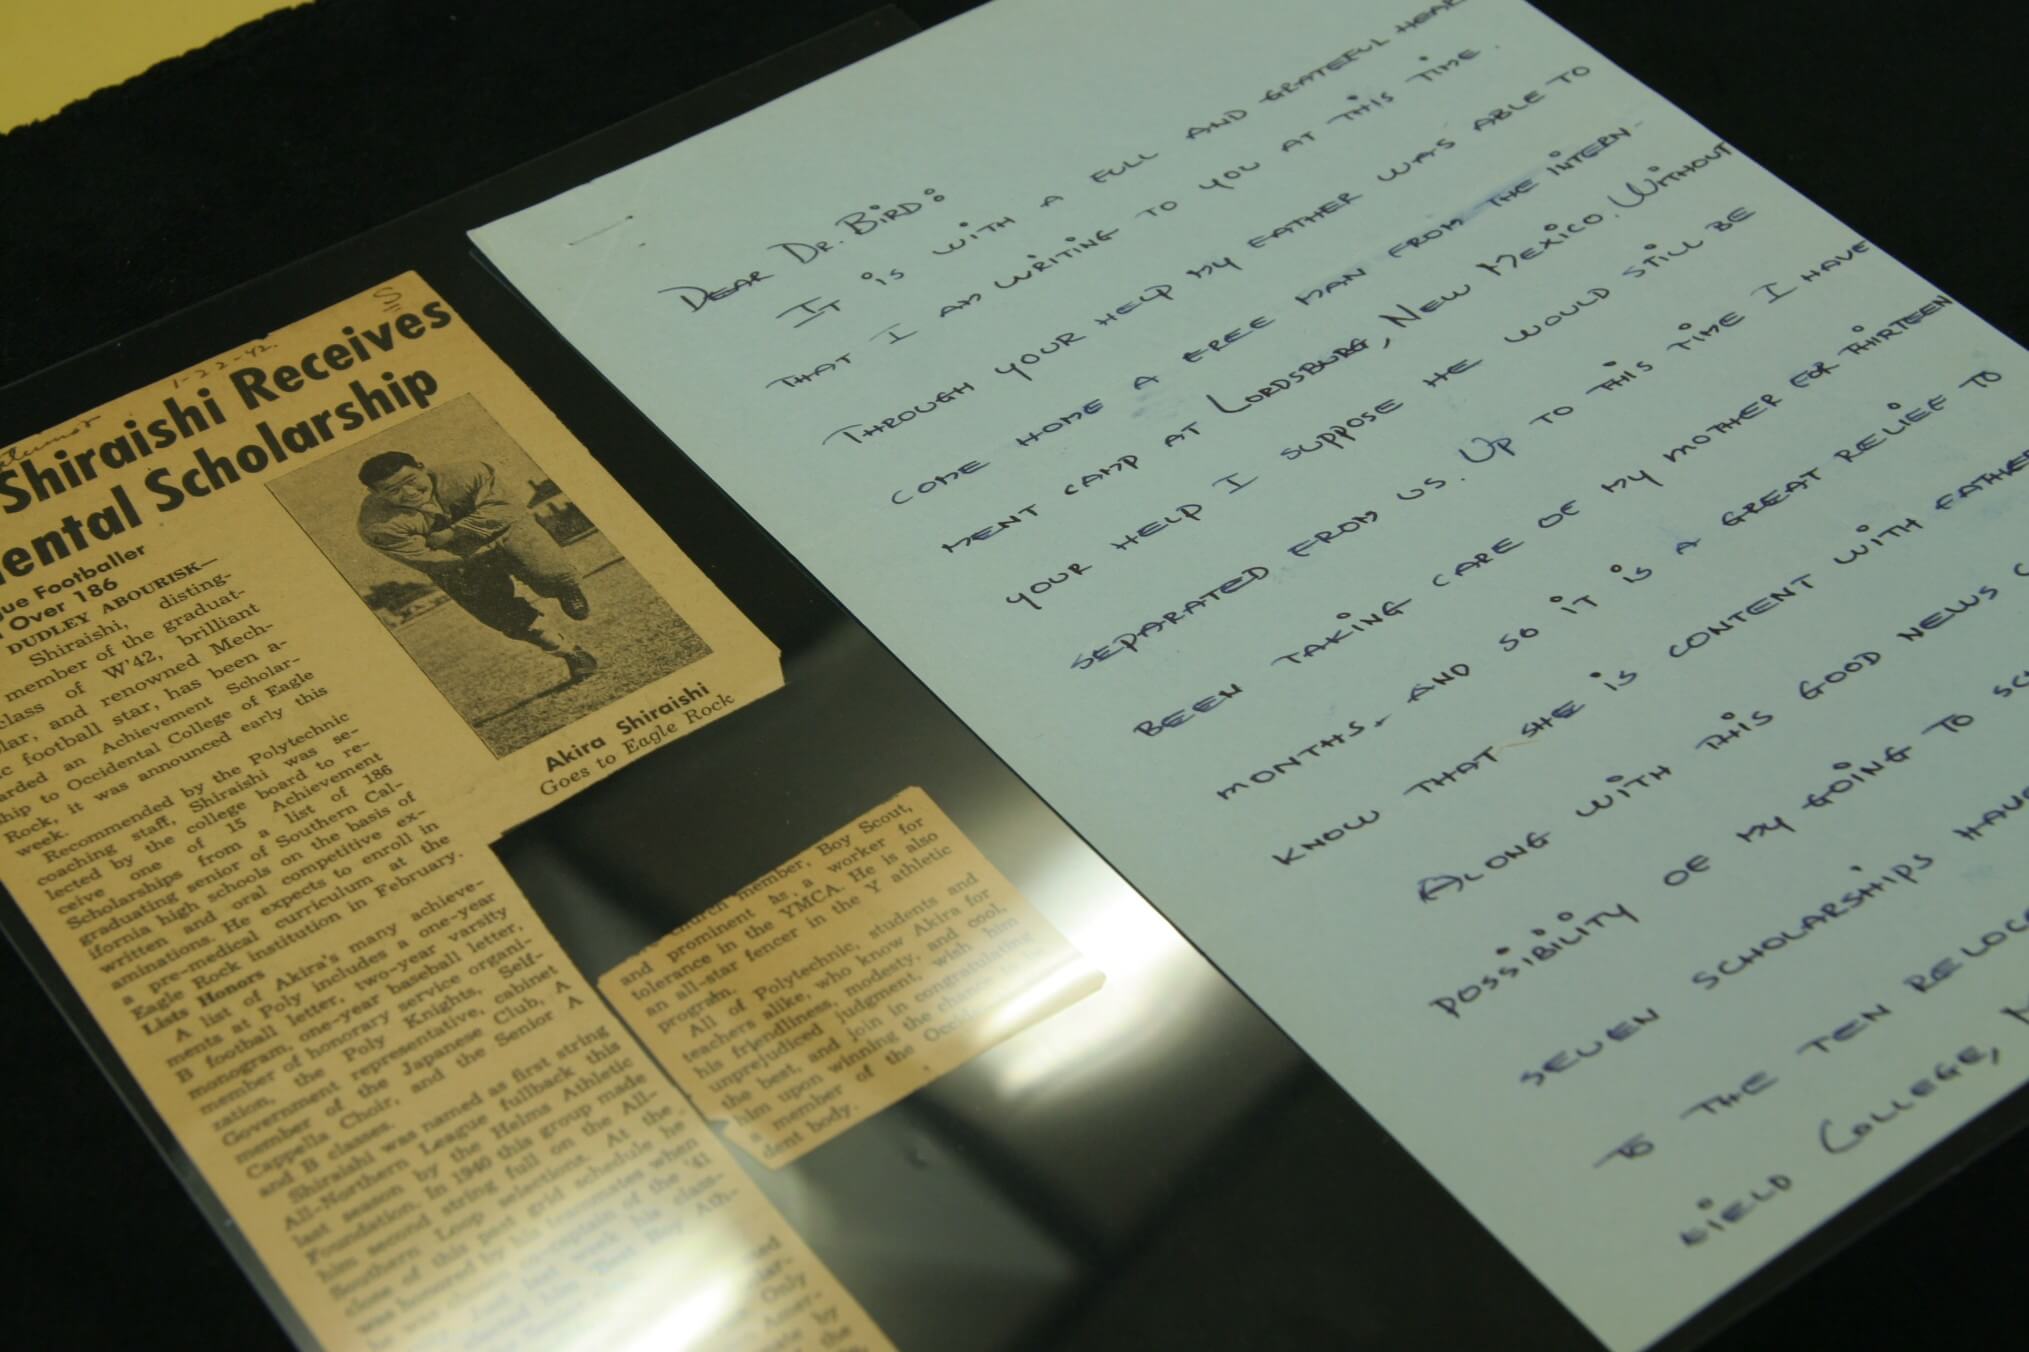 S
1-22-42.
Shiraishi Receives
ental Scholarship
ue Footballer
Over 186
DUDLEY ABOURISK—
Shiraishi, disting-
member of the graduat-
class of W'42, brilliant
lar, and renowned Mech-
c football star, has been a-
arded an Achievement Scholar-
ship to Occidental College of Eagle
Rock, it was announced early this
week.
Recommended by the Polytechnic
coaching staff, Shiraishi was se-
lected by the college board to re-
ceive one of 15 Achievement
Scholarships from a list of 186
graduating senior of Southern Cal-
ifornia high schools on the basis of
written and oral competitive ex-
aminations. He expects to enroll in
a pre-medical curriculum at the
Eagle Rock institution in February.
Lists Honors
A list of Akira's many achieve-
ments at Poly includes a one-year
B football letter, two-year varsity
monogram, one-year baseball letter,
member of honorary service organi-
zation, the Poly Knights, Self-
Government representative, cabinet
member of the Japanese Club, A
Cappella Choir, and the Senior A
and B classes.
Shiraishi was named as first string
All-Northern League fullback this
last season by the Helms Athletic
Foundation. In 1940 this group made
him second string full on the All-
Southern Loop selections. At the
close of this past grid schedule he
was honored by his teammates when
he was co-captain of the '41
Just last week his class-
him "Best Ath-
Akira Shiraishi
Goes to Eagle Rock
church member, Boy Scout,
and prominent as a worker for
tolerance in the YMCA. He is also
an all-star fencer in the Y athletic
program.
All of Polytechnic, students and
teachers alike, who know Akira for
his friendliness, modesty, and cool,
unprejudiced judgment, wish him
the best, and join in congratulating
him upon winning the chance to be
a member of the
dent body.
DEAR DR. BIRD:
IT IS WITH A FULL AND GRATEFUL HEAR
THAT I AM WRITING TO YOU AT THIS TIME.
THROUGH YOUR HELP MY FATHER WAS ABLE TO
COME HOME A FREE MAN FROM THE INTERN-
MENT CAMP AT LORDSBURG, NEW MEXICO. WITHOUT
YOUR HELP I SUPPOSE HE WOULD STILL BE
SEPARATED FROM US. UP TO THIS TIME I HAVE
BEEN TAKING CARE OF MY MOTHER FOR THIRTEEN
MONTHS. AND SO IT IS A GREAT RELIEF TO
KNOW THAT SHE IS CONTENT WITH FATHER
ALONG WITH THIS GOOD NEWS
POSSIBILITY OF MY GOING TO SC
SEVEN SCHOLARSHIPS HAV
TO THE TEN RELOC
FIELD COLLEGE,